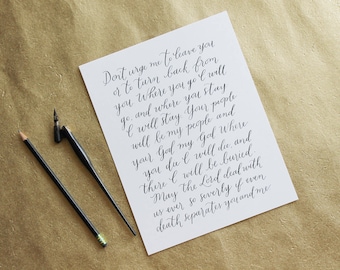 Don't urge me to leave you
or to turn back from
you. Where you go I will
go, and where you stay
I will stay. Your people
will be my people and
your God my God. Where
you die I will die, and
there I will be buried.
May the Lord deal with
us ever so severly if even
death separates you and me.